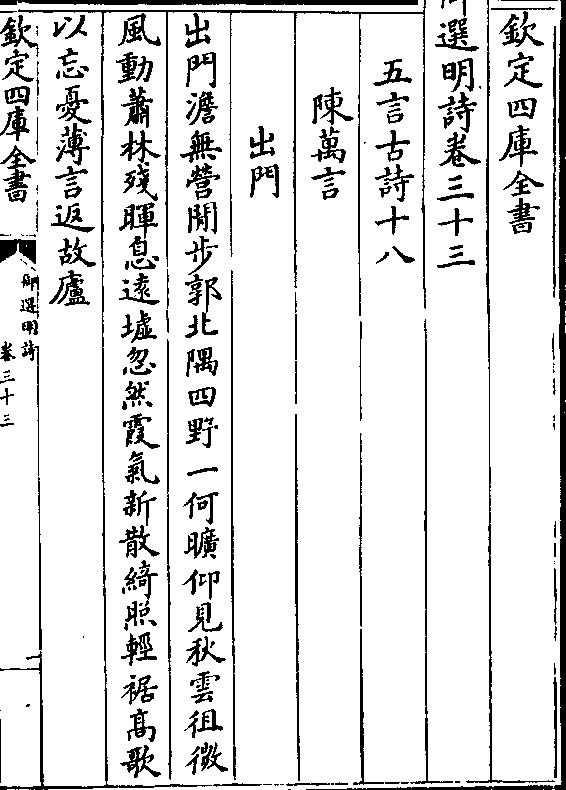 欽定四庫全書
御選明詩卷三十三
五言古詩十八
陳萬言
出門
出門澹無營閒步郭北隅四野一何曠仰見秋雲徂微
風動蕭林殘暉息遠墟忽然霞氣新散綺照輕裾髙歌
以忘憂薄言返故廬
欽定四庫全書
御選明詩
卷三十三
一